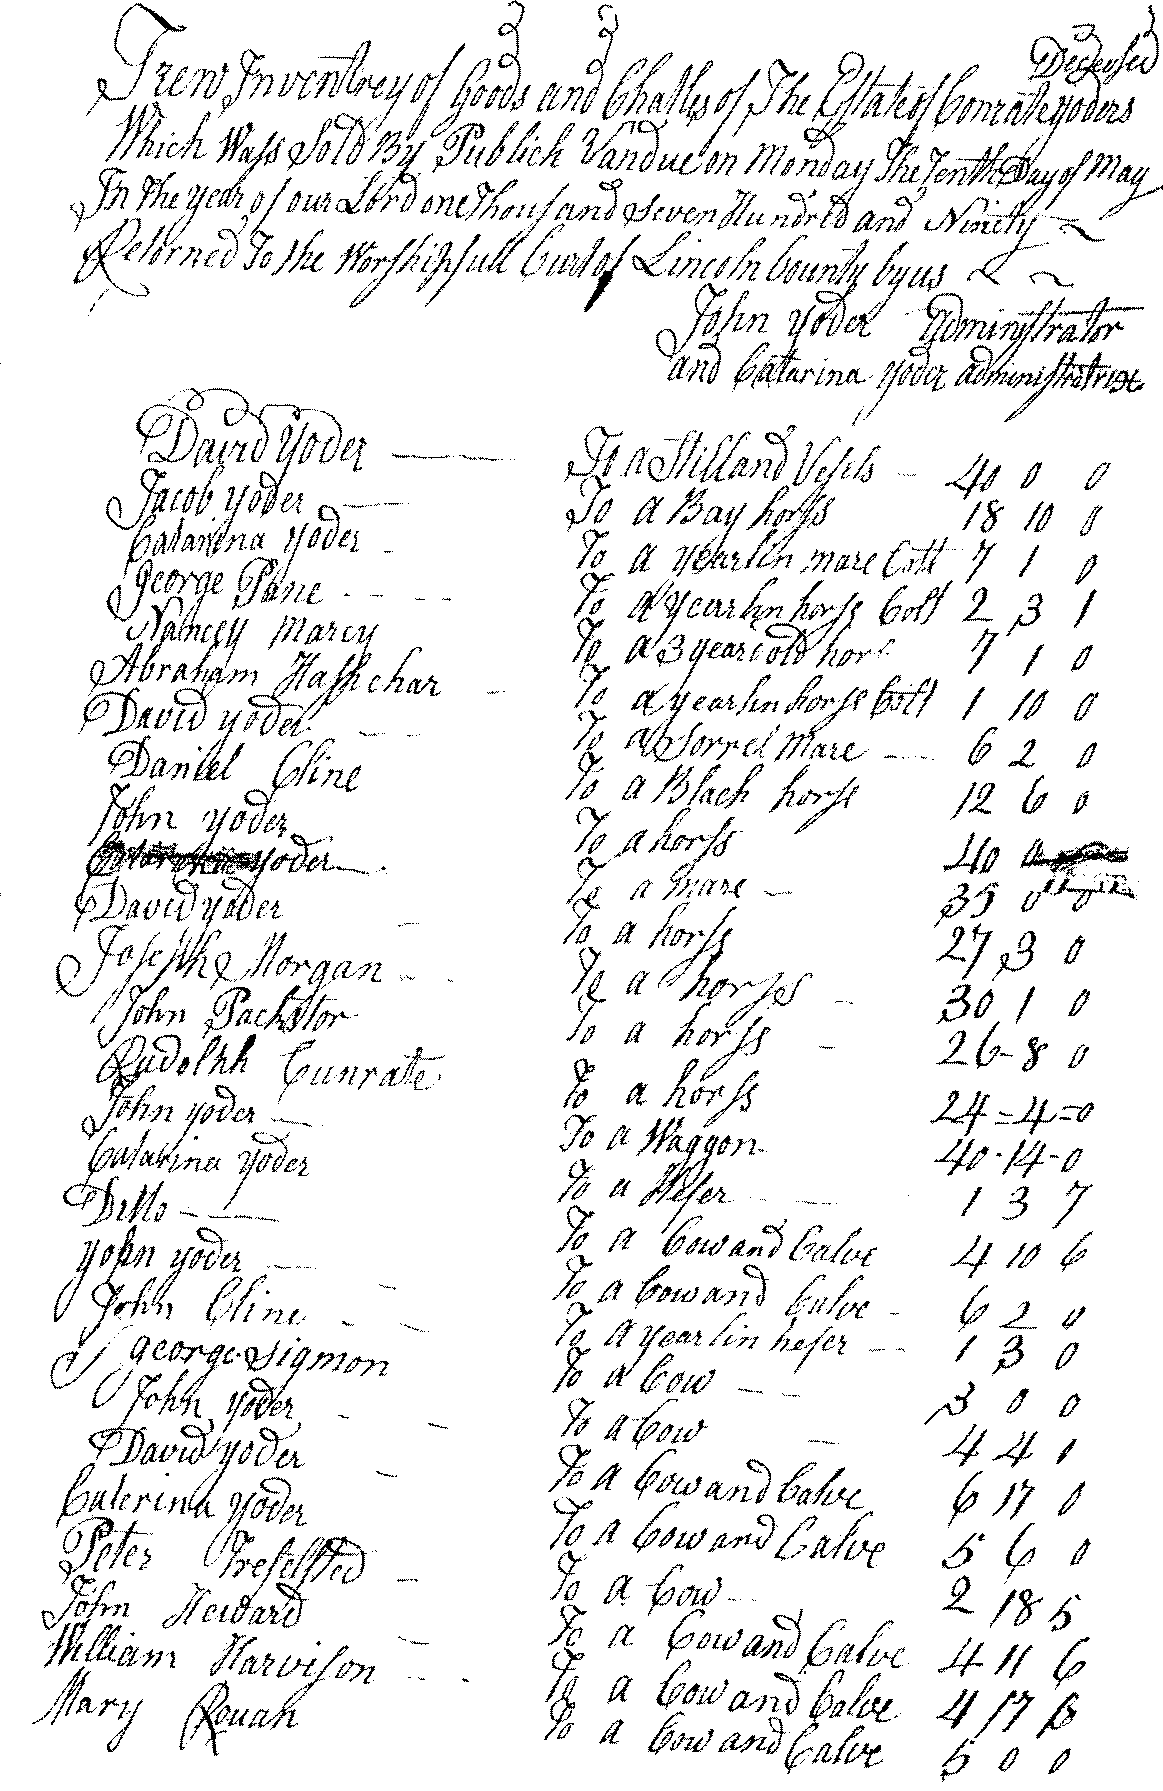 Deceased
Trew Inventrey of Goods and Chatles of The Estate of Conrate Yoders
Which Wass Sold By Publick Vandue on Monday The Tenth Day of May
In The year of our Lord one Thousand Seven Hundred and Ninety
Retorned To the Worshipfull Curt of Lincoln County by us
John Yoder Adminstrator
and Catarina Yoder administratrix
David Yoder To a Still and Vesels 40 0 0
Jacob Yoder To a Bay horss 18 10 0
Catarina Yoder To a yearlin mare Colt 7 1 0
George Pane To a yearlin horss Colt 2 3 1
Nancey Marcy To a 3 year old horss 7 1 0
Abraham Hashchar To a yearlin horss Colt 1 10 0
David Yoder To a Sorrel Mare 6 2 0
Daniel Cline To a Black horss 12 6 0
John Yoder To a horss 40 0
Yoder To a mare 35 0 0
David Yoder To a horss 27 3 0
Joseph Morgan To a horses 30 1 0
John Pachstor To a horss 26-8 0
Rudolph Cunrate To a horss 24=4=0
John Yoder To a Waggon 40-14-0
Catarina Yoder To a Hefer 1 3 7
Ditto To a Cow and Calve 4 10 6
John Yoder To a Cow and Calve 6 2 0
John Cline To a yearlin hefer 1 3 0
George Sigmon To a Cow 3 0 0
John Yoder To a Cow 4 4 1
David Yoder To a Cow and Calve 6 17 0
Caterina Yoder To a Cow and Calve 5 6 0
Peter To a Cow 2 18 5
John Heward To a Cow and Calve 4 11 6
William Harvison To a Cow and Calve 4 17 6
Mary Rouah To a Cow and Calve 5 0 0